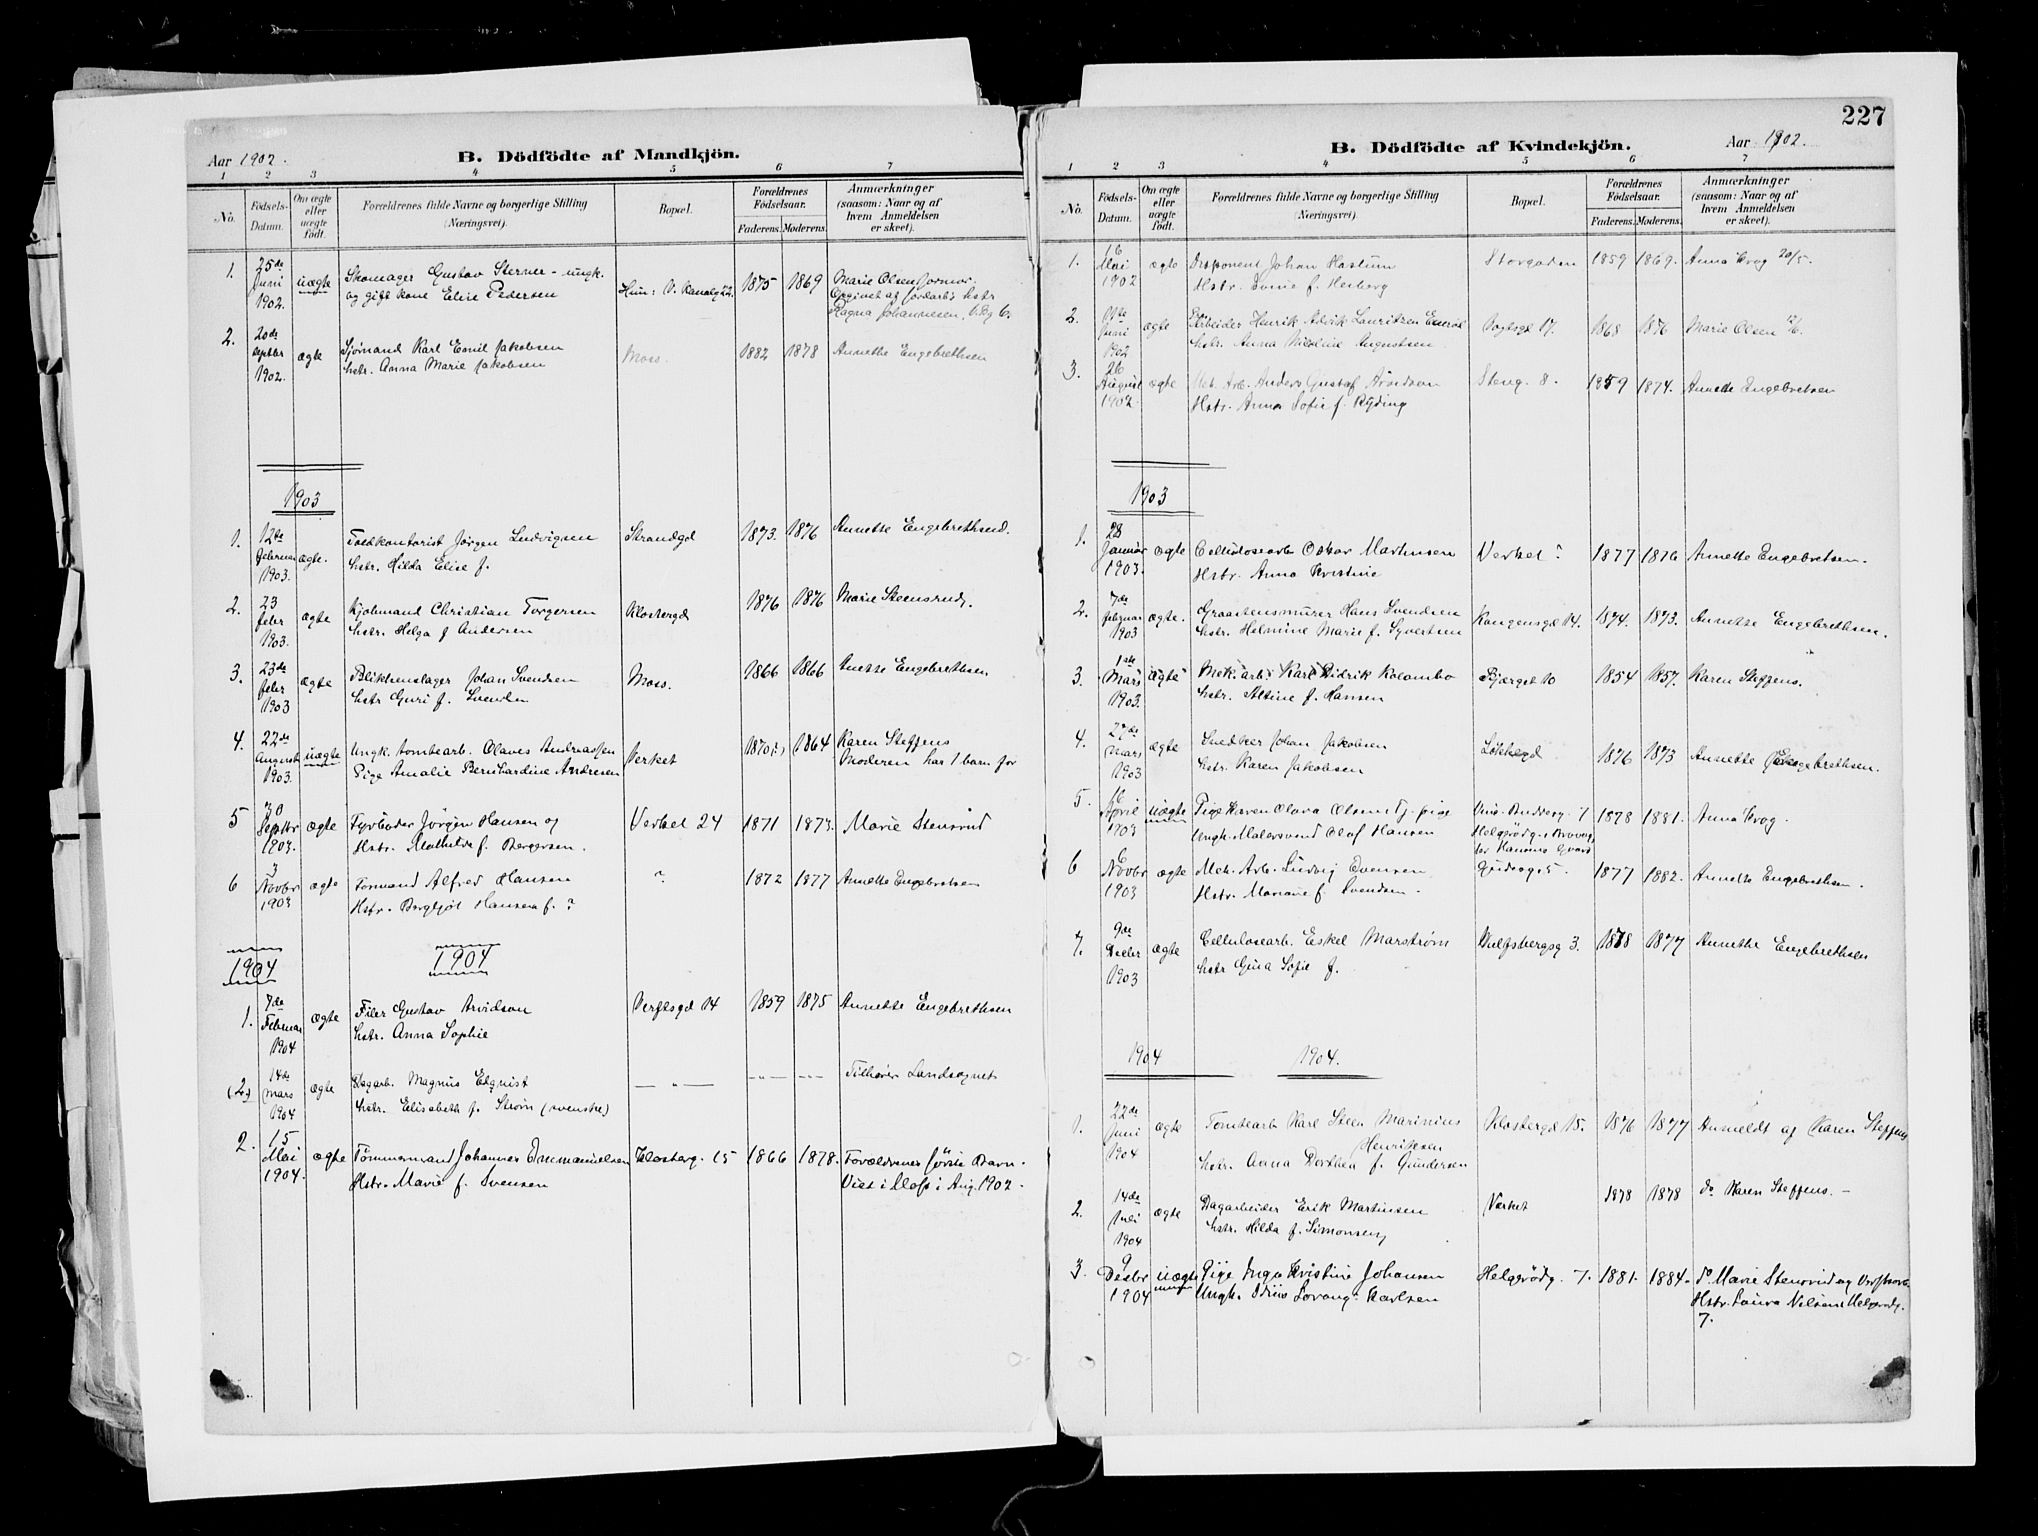 Aar 1902.
B. Dödfödte af Mandkjön.
1 2 3 4 5 6 7
No.
Födsels-Datum.
Om ægte eller uægte födt.
Forældrenes fulde Navne og borgerlige Stilling (Næringsvei).
Bopæl.
Forældrenes Födselsaar.
Faderens. Moderens.
Anmærkninger (saasom: Naar og af hvem Anmeldelsen er skeet).
1. 25de Juni 1902. uægte Skomager Gustav Sterner - ungk. 1875 1869 Marie Olsen Jormor.
og gift kone Elise Pedersen
Ragna Johannesen,
2. 20de Septbr 1902. ægte Sjømand Karl Emil Jakobsen Moss. 1882 1878 Annethe Engebrethsen
hstr. Anna Marie Jakobsen
1903
1. 12te Februar 1903. ægte. Toldkontorist Jørgen Ludvigsen Strandgd 1873. 1876 Annette Engebrethsen.
hstr. Hilda Elise f.
2. 23 febr 1903. ægte Kjøbmand Christian Torgersen Klostergd 1876 1876 Marie Steensrud.
hstr. Helga f Andersen
3. 23de febr 1903 ægte Blikkenslager Johan Svendsen Moss. 1866 1866 Anette Engebrethsen
hstr Guri f. Svendsen
4. 22de August 1903. uægte Ungk. tomtearb. Olaves Andreassen Verket 1870 1864 Karen Steffens
Pige Amalie Bernhardine Andresen Moderen har 1 barn før
5 30 Septbr 1903. ægte Fyrbøder Jörgen Hansen og Verket 24 1871 1873. Marie Stensrud
Hstr. Mathilde f. Bergersen.
6 3 Novbr 1903 ægte Formand Alfred Hansen ? 1872 1877 Annette Engebretsen
Hstr. Bergljot Hansen f. ?
1904 1904
1. 7de Februar 1904 ægte Filer Gustav Arvidson Verftsgd 14 1859 1875 Annette Engebrethsen
hstr. Anna Sophie
(2.) 14de Mars 1904 ægte Dagarb. Magnus Elqvist — „ — - „ - - - - Tilhører Landsognet
hstr. Elisabeth f. Strøm (svenske)
2. 15 Mai 1904. ægte Tömmermand Johannes Emmanuelsen Klosterg. 15 1866 1878. Forældrenes første Barn.
Hstr. Marie f. Svensen Viet i Moss i Aug. 1902.
227
B. Dödfödte af Kvindekjön.
Aar 1902.
1 2 3 4 5 6 7
No.
Födsels-Datum.
Om ægte eller uægte födt.
Forældrenes fulde Navne og borgerlige Stilling (Næringsvei).
Bopæl.
Forældrenes Födselsaar.
Faderens. Moderens.
Anmærkninger (saasom: Naar og af hvem Anmeldelsen er skeet).
1. 16 Mai 1902 ægte Disponent Johan Storgaden 1859 1869. Anna Krog 20/5.
Hstr.
2. Juni 1902 ægte Arbeider Henrik Lauritzen Vogtsgd 17. 1868 1876 Marie Olsen
hstr. Anna Nicoline Augustsen
3. 26 August 1902. ægte Mek. Arb. Anders Gustaf Arvidson Steng. 8. 1859 1874. Annette Engebretsen
Hstr. Anna Sofie f. Ryding
1903
1. 28 Januar 1903. ægte Cellulosearb Oskar Martinsen Verket ? 1877 1876 Annette Engebretsen.
Hstr. Anna Kristine
2. 7de februar 1903 ægte. Graastensmurer Hans Svendsen Kongensgd 14. 1874. 1873. Annette Engebrethsen.
hstr. Helmine Marie f. Syvertsen
3. 1ste Mars 1903. ægte Mek. arb. Karl Didrik Kolombo Bjerget 10 1854 1857. Karen Steffens.
hstr. Altine f. Hansen
4. 27de mars 1903 ægte Snedker Johan Jakobsen 1876 1873 Annette Engebrethsen.
hstr. Karen Jakobsen
5. 16 April 1903 uægte Pige Karen Olava Olsen Tj. pige 1878 1881. Anna Krog.
Ungk. Malersvend Olaf Hansen
6 6 Novbr 1903 ægte Mek. Arb. Ludvig Evensen 1877 1882. Annette Engebrethsen.
Hstr. Mariane f. Svendsen.
7. 9de Decbr 1903 ægte Cellulosearb. Eskel Marstrøm Wulfsbergsg 3. 1878 1877 Annette Engebrethsen
hstr Gina Sofie f.
1904 1904.
1. 22de Juni 1904 ægte Tomtearb Karl Steen Marinius Henriksen Klostergd 15. 1876 1877 Anmeldt af Karen Steffens
hstr. Anna Dorthea f. Gundersen
2. 14de Juli 1904 ægte Dagarbeider Erik Martinsen Værket 1878 1878 do Karen Steffens. -
hstr. Hilda f. Simonsen
3. 9 Desbr 1904 uægte Pige Inga Kristine Johansen Helgerödg. 7. 1881. 1884. do Marie Stensrud og
Ungk. Karlsen Hstr. Laura Nilsen Helgerödg. 7.